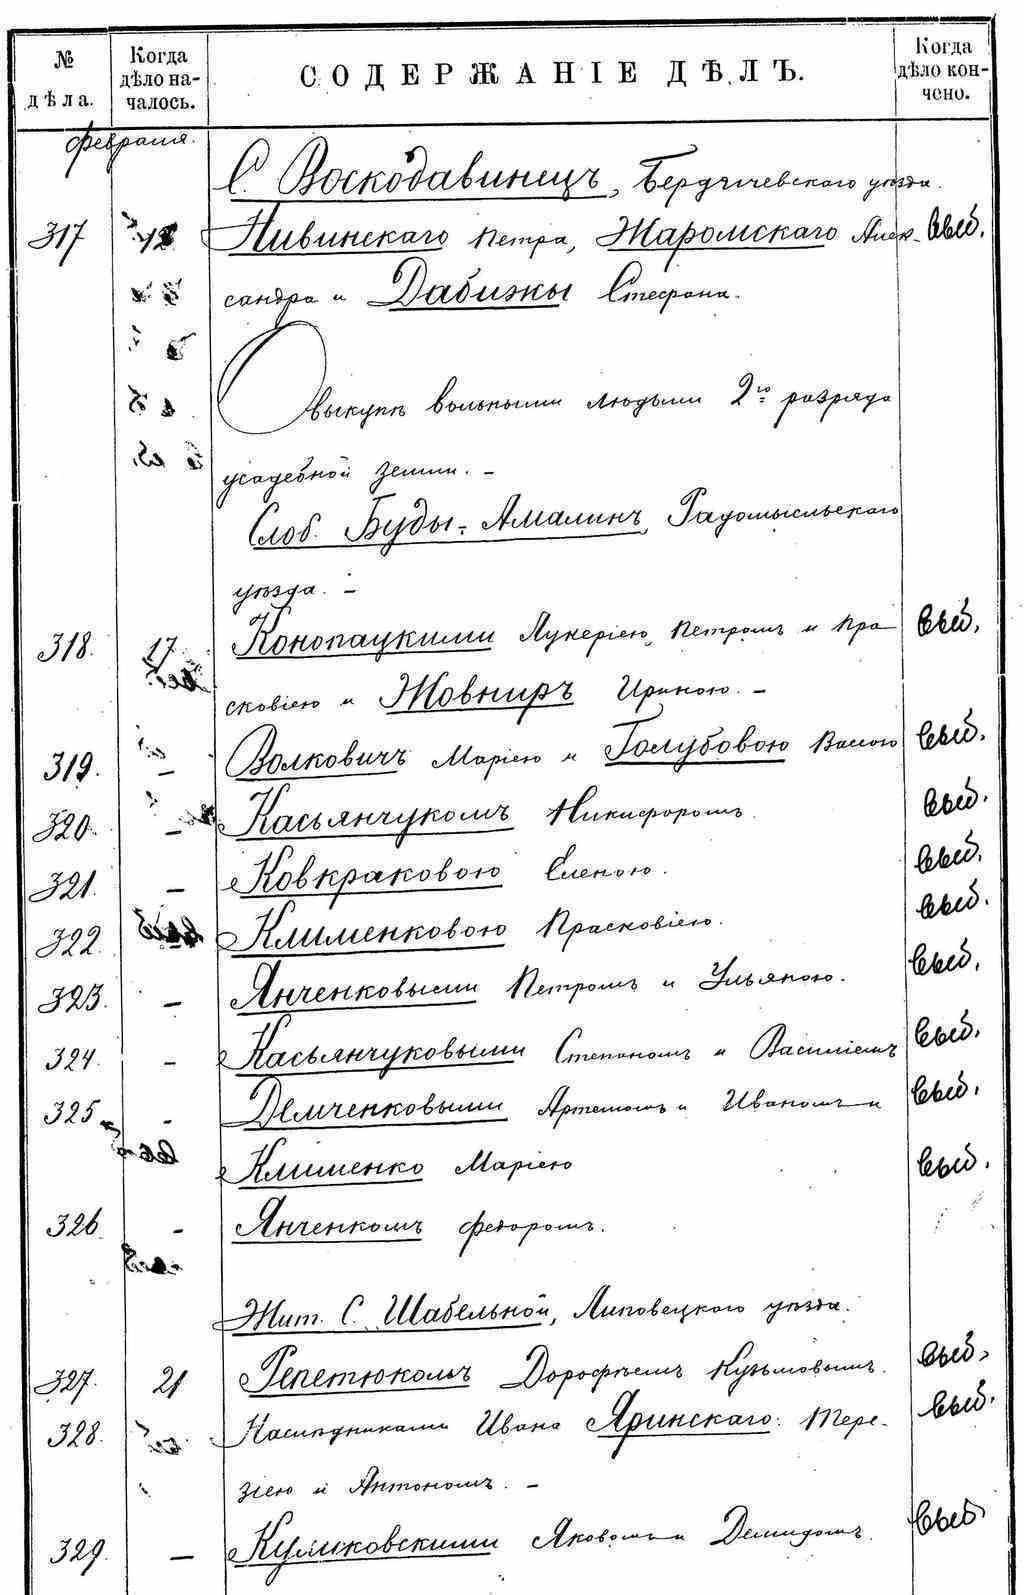 № дѣла.
Когда дѣло началось.
СОДЕРЖАНІЕ ДѢЛЪ.
Когда дѣло кончено.
февраля.
С. Воскодавинецъ, Бердичевскаго уѣзда.
317 12 Нивинскаго Петра, Жаромскаго Алек- выб.
сандра и Дабижы Стефана.
О выкупѣ вольными людьми 2го разряда
усадебной земли. –
Слоб. Буды-Амалинъ, Радомысльскаго
уѣзда. –
318. 17. Конопацкими Лукеріею, Петромъ и Пра выб.
сковіею и Жовниръ Ириною. –
319. – Волковичъ Маріею и Голубовою Вассою выб.
320. – Касьянчукомъ Никифоромъ. выб.
321. – Ковкраковою Еленою. выб.
322. Клименковою Прасковіею. выб.
323. – Янченковыми Петромъ и Ульяною. выб.
324. – Касьянчуковыми Степаномъ и Василіемъ выб.
325 – Демченковыми Артемомъ и Иваномъ и выб.
Клименко Маріею выб.
326 – Янченкомъ Федоромъ.
Жит. С. Шабельной, Липовецкаго уѣзда.
327. 21 Репетюкомъ Дорофѣемъ Кузьмовымъ. выб.
328. Наслѣдниками Ивана Яринскаго: Тере- выб.
зіею и Антономъ. –
329. – Куликовскими Яковомъ и Демидомъ. выб.